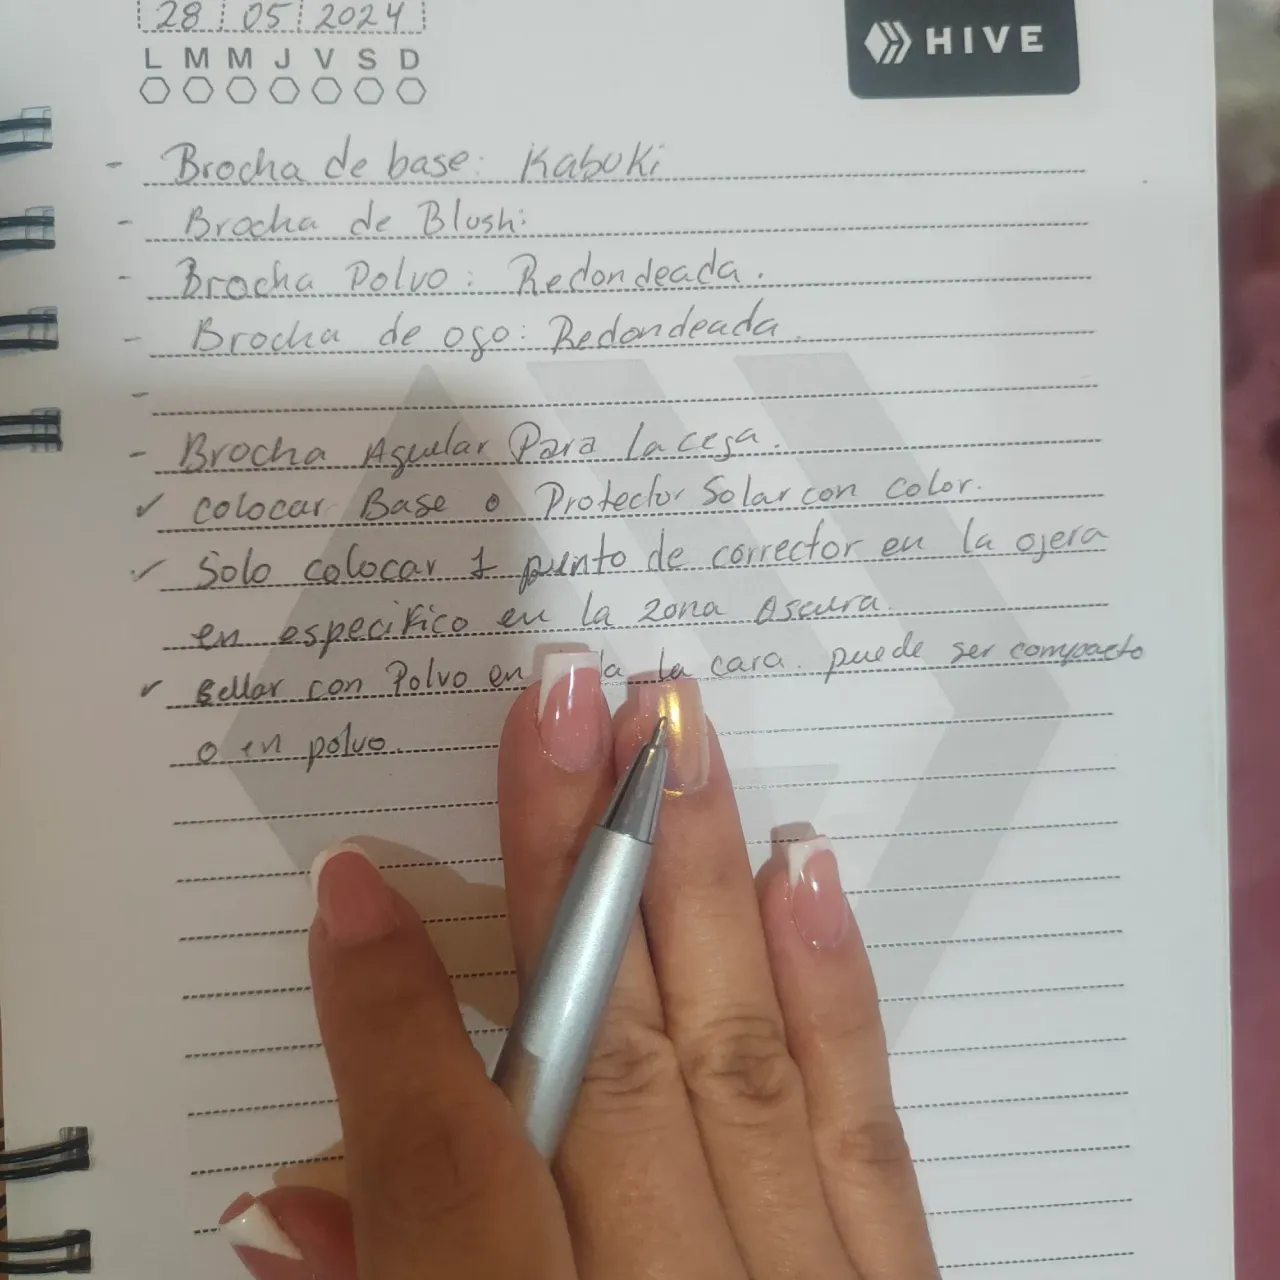 28 05 2024
HIVE
L M M J V S D
- Brocha de base: Kabuki
- Brocha de Blush:
- Brocha Polvo: Redondeada.
- Brocha de ojo: Redondeada.
-
- Brocha Agular Para La ceja.
✓ Colocar Base o Protector Solar con color.
✓ Solo colocar 1 punto de corrector en la ojera
en especifico en la zona Oscura.
✓ Sellar con Polvo en la cara. puede ser compacto
o en polvo.